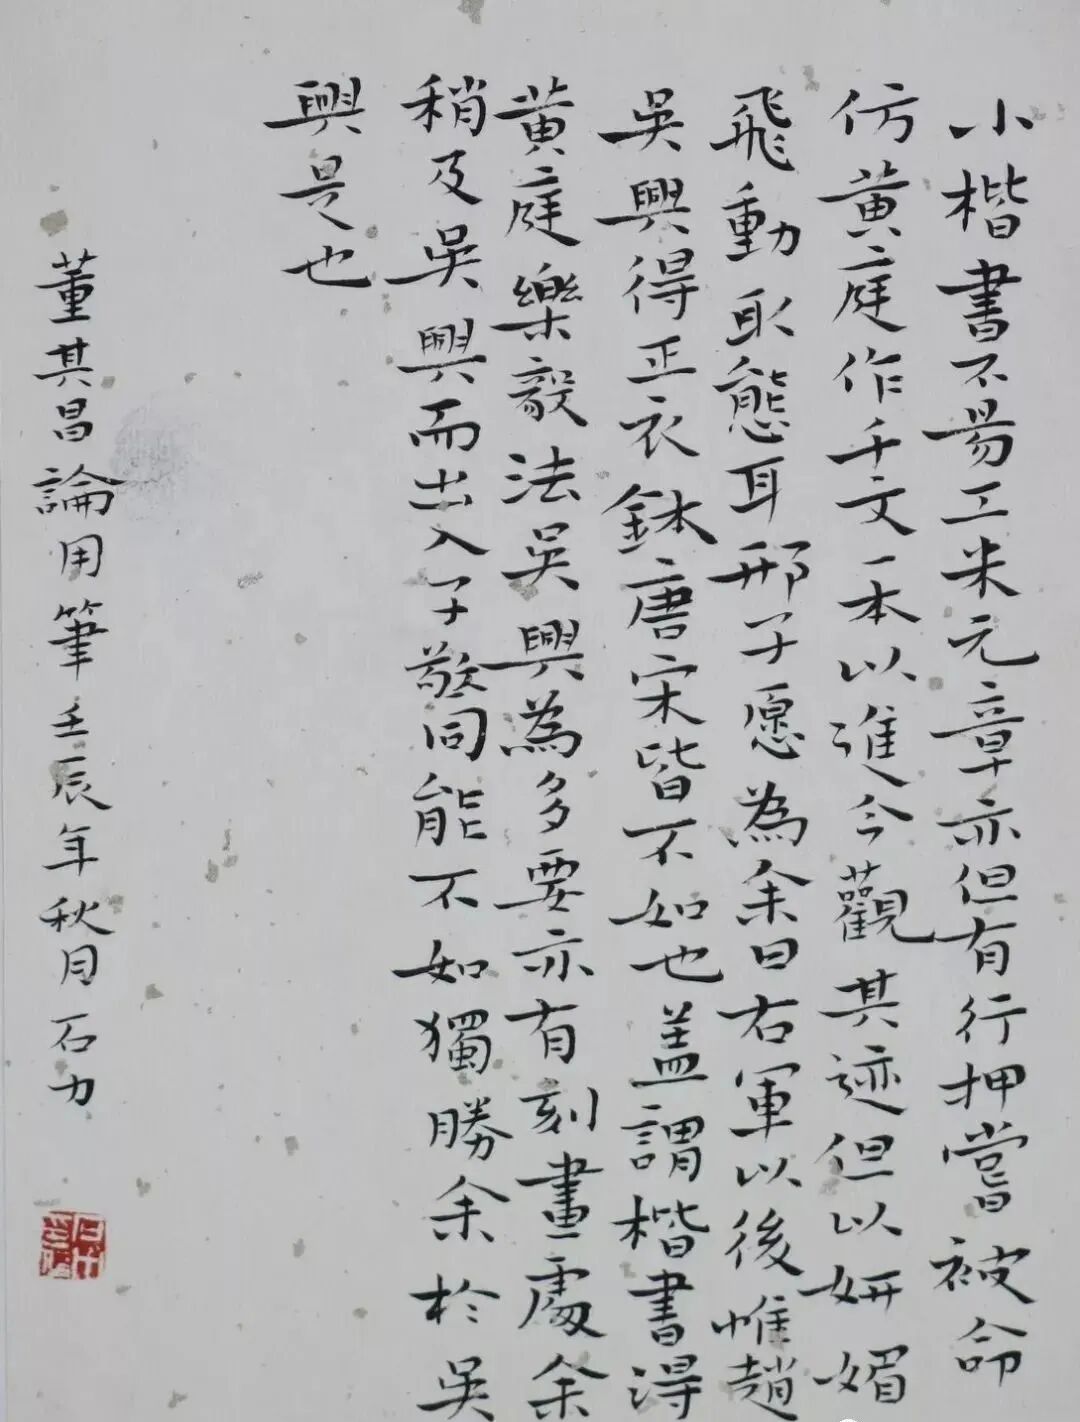 小楷書不易工米元章亦但有行押嘗被命
仿黄庭作千文一本以進今觀其迹但以妍媚
飛動取態耳邢子愿為余曰右軍以後惟趙
吳興得正衣鉢唐宋皆不如也盖謂楷書得
黄庭樂毅法吳興為多要亦有刻畫處余
稍及吳興而出入子敬同能不如獨勝余於吳
興是也
董其昌論用筆壬辰年秋月石力